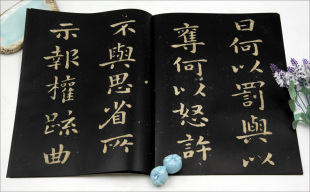 曰何以罰與以
奪何以怒許
不與思省所
示報權疏曲